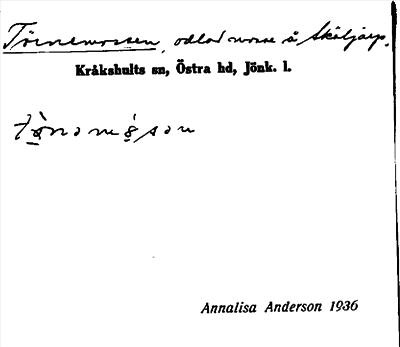 Törnemossen, odlad mosse å Skäljarp.
Kråkshults sn, Östra hd, Jönk. l.
Annalisa Anderson 1936